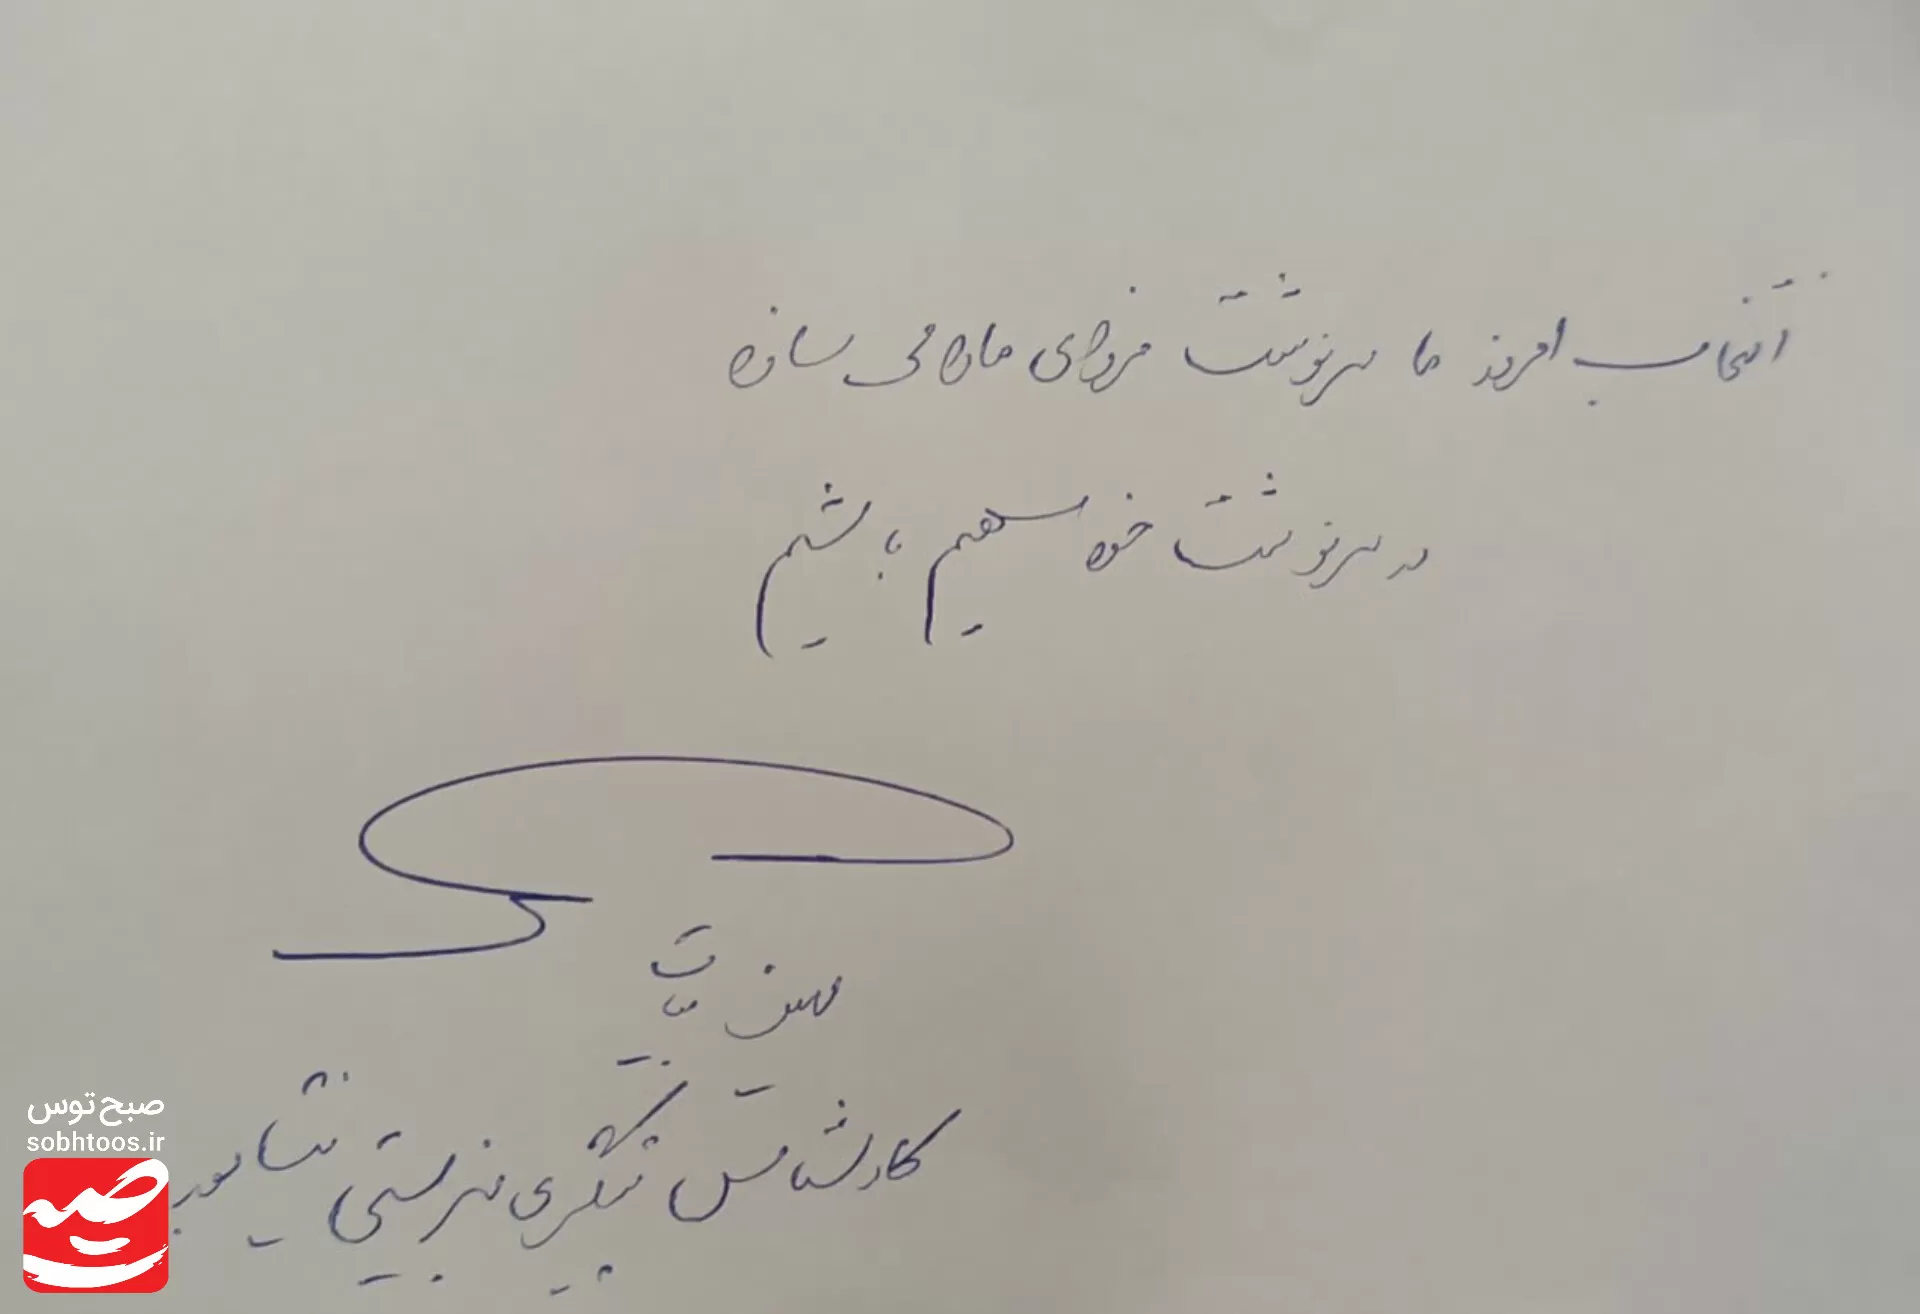 انتخاب امروز ما سرنوشت فردای ما را می سازد
در سرنوشت خود سهیم باشیم
کارشناس پیشگیری بهزیستی نیشابور
صبح توس
sobhtoos.ir